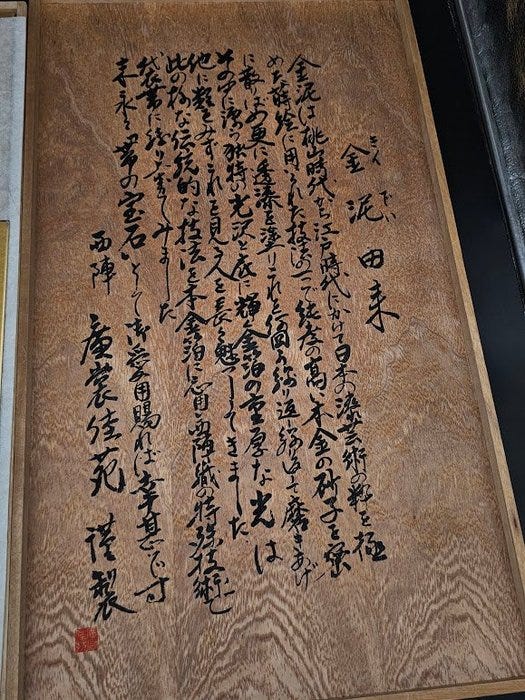 きん でい
金泥由来
金泥は桃山時代から江戸時代にかけて日本の漆芸術の粋を極
めた蒔絵に用いられた技法の一つで純度の高い本金の砂子を密
に散りばめ更に透漆を塗りこれを何回か繰り返し繰り返し磨きあげ
その中に漆の独特の光沢と底に輝く金箔の重厚な光は
他に類をみずこれを見る人を長く魅了してきました
此の様な伝統的な技法を本金箔に応用し西陣織の特殊技術と
して袋帯に織り上げてみました
末永く帯の宝石として御愛用賜れば幸甚です
西陣 廣裳佳苑 謹製